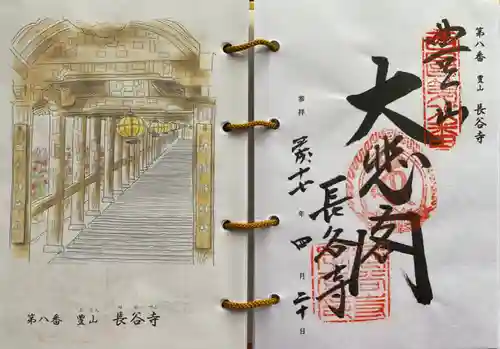 第八番 豊山 長谷寺
第八番 豊山 長谷寺
豊山
大悲閣
長谷寺
奉拝
年 四 月 二十 日